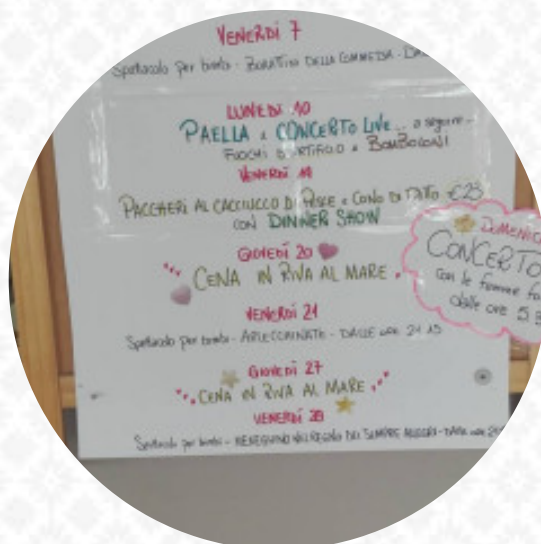 VENERDÌ 7
Spettacolo per bimbi - BURATTINI DELLA COMMEDIA -
LUNEDÌ 10
PAELLA e CONCERTO LIVE... a seguire...
FUOCHI D'ARTIFICIO e BOMBOLONI
VENERDÌ
PACCHERI AL CACCIUCCO DI PESCE e CONO DI FRITTO €25
CON DINNER SHOW
GIOVEDÌ 20
CENA IN RIVA AL MARE
VENERDÌ 21
Spettacolo per bimbi - ARLECCHINATE - DALLE ore 21.15
GIOVEDÌ 27
CENA IN RIVA AL MARE
VENERDÌ 28
Spettacolo per bimbi - MENEGHINO NEL REGNO DEI SEMPRE ALLEGRI - DALLE ore
DOMENICA
CONCERTO
con le
dalle ore 5.3